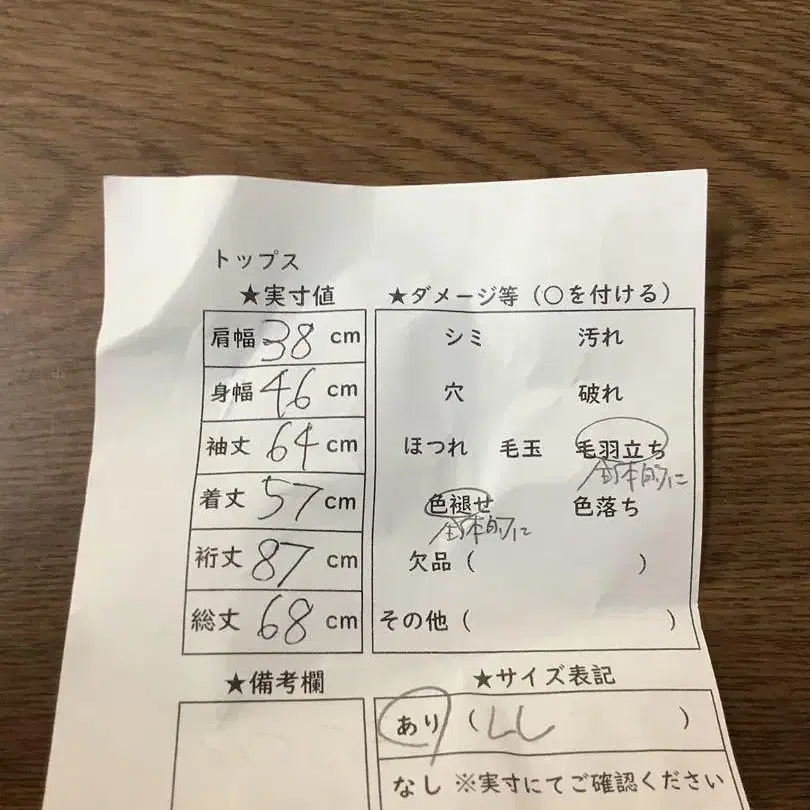 トップス
★実寸値
肩幅 38 cm
身幅 46 cm
袖丈 64 cm
着丈 57 cm
裄丈 87 cm
総丈 68 cm
★ダメージ等（○を付ける）
シミ 汚れ
穴 破れ
ほつれ 毛玉 毛羽立ち
全体的に
色褪せ 色落ち
全体的に
欠品（ ）
その他（ ）
★備考欄
★サイズ表記
あり（LL ）
なし ※実寸にてご確認ください